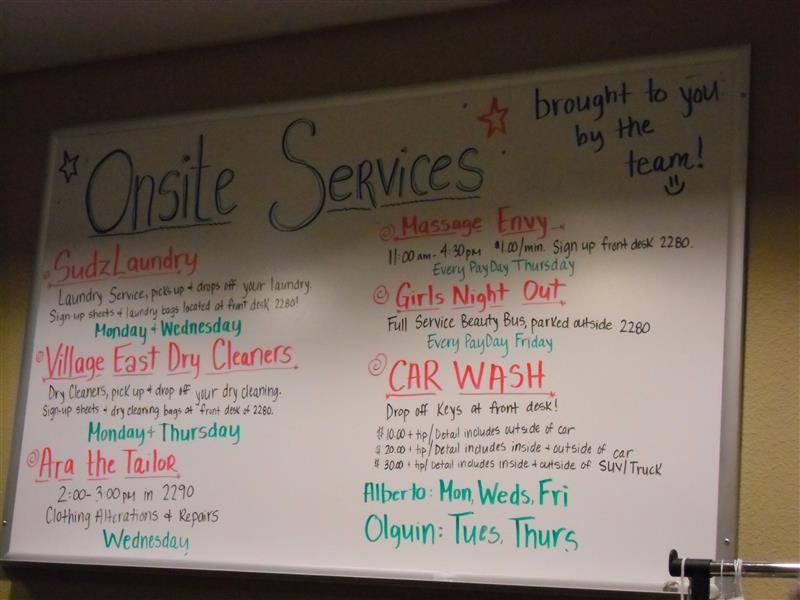 Onsite Services
brought to you
by the
team!
Sudz Laundry
Laundry Service, picks up & drops off your laundry.
Sign-up sheets & laundry bags located at front desk 2280!
Monday & Wednesday
Village East Dry Cleaners
Dry Cleaners, pick up & drop off your dry cleaning.
Sign-up sheets & dry cleaning bags at front desk of 2280.
Monday & Thursday
Ara the Tailor
2:00-3:00pm in 2290
Clothing Alterations & Repairs
Wednesday
Massage Envy
11:00am-4:30pm $1.00/min. Sign up front desk 2280.
Every PayDay Thursday
Girls Night Out
Full Service Beauty Bus, parked outside 2280
Every PayDay Friday
CAR WASH
Drop off Keys at front desk!
$10.00 + tip/Detail includes outside of car
$20.00 + tip/Detail includes inside + outside of car
$30.00 + tip/Detail includes inside + outside of SUV/Truck
Alberto: Mon, Weds, Fri
Olguin: Tues, Thurs